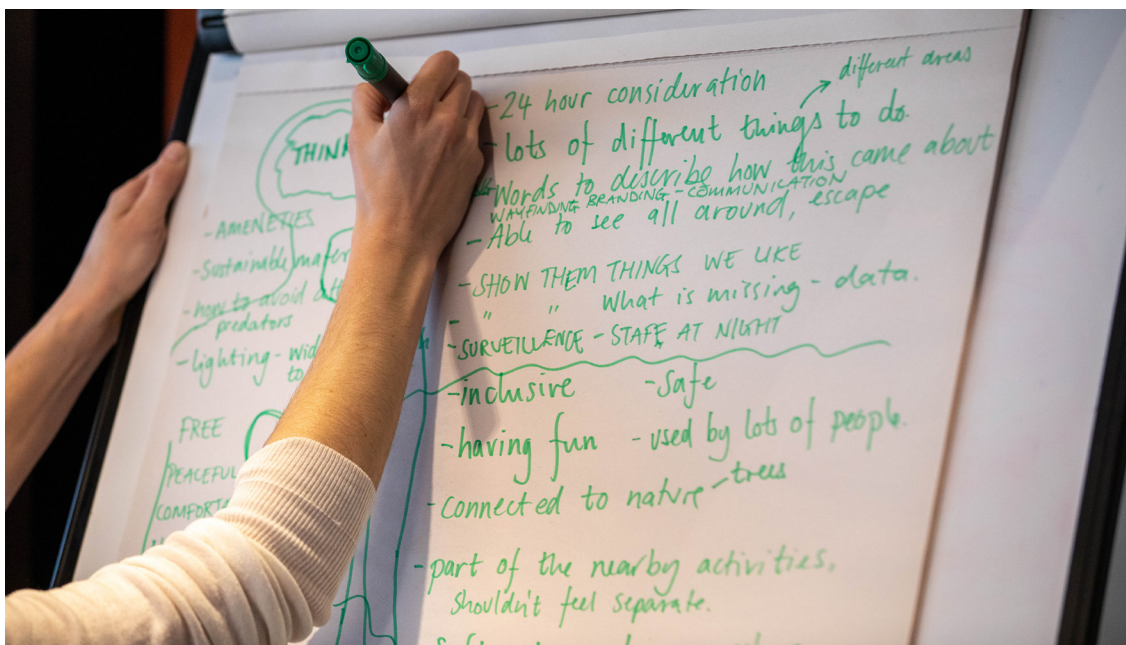 THINK
- AMENETIES
- Sustainable
- how to avoid
predators
- lighting -
to
FREE
PEACEFUL
- 24 hour consideration
different areas
- lots of different things to do.
- Words to describe how this came about
WAYFINDING BRANDING - COMMUNICATION
- Able to see all around, escape
- SHOW THEM THINGS WE LIKE
- " " What is missing - data.
- SURVEILLENCE - STAFF AT NIGHT
- inclusive - safe
- having fun - used by lots of people.
- Connected to nature - trees
- part of the nearby activities,
shouldn't feel separate.